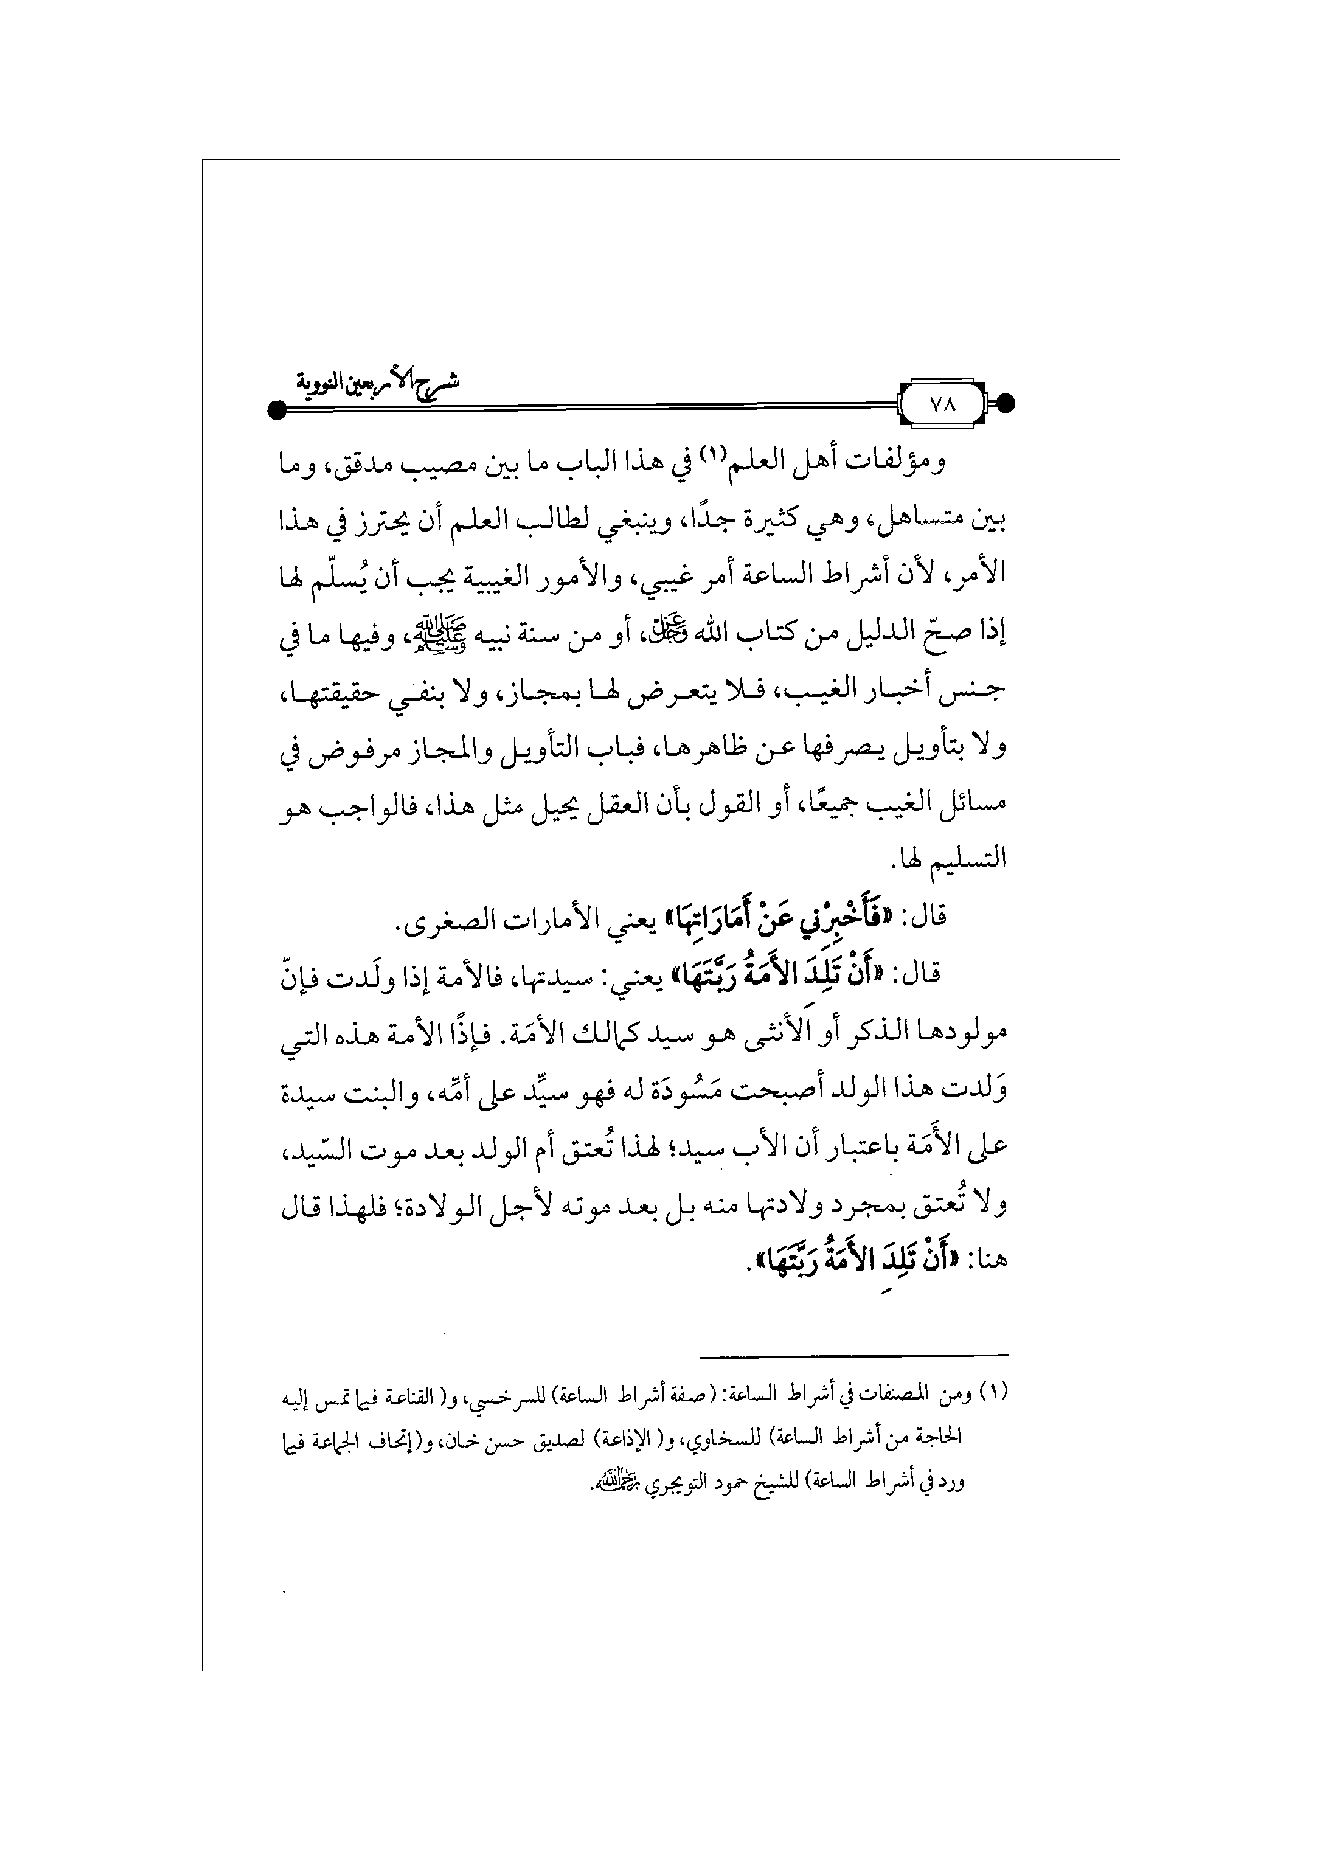 شرح الأربعين النووية
٧٨
ومؤلفات أهل العلم(١) في هذا الباب ما بين مصيب مدقق، وما
بين متساهل، وهي كثيرة جدًا، وينبغي لطالب العلم أن يحترز في هذا
الأمر، لأن أشراط الساعة أمر غيبي، والأمور الغيبية يجب أن يُسلّم لها
إذا صحّ الدليل من كتاب الله عز وجل، أو من سنة نبيه ﷺ، وفيها ما في
جنس أخبار الغيب، فلا يتعرض لها بمجاز، ولا بنفي حقيقتها،
ولا بتأويل يصرفها عن ظاهرها، فباب التأويل والمجاز مرفوض في
مسائل الغيب جميعًا، أو القول بأن العقل يحيل مثل هذا، فالواجب هو
التسليم لها.
قال: «فَأَخْبِرْنِي عَنْ أَمَارَاتِهَا» يعني الأمارات الصغرى.
قال: «أَنْ تَلِدَ الأَمَةُ رَبَّتَهَا» يعني: سيدتها، فالأمة إذا ولَدت فإنّ
مولودها الذكر أو الأنثى هو سيد كمالك الأمَة. فإذًا الأمة هذه التي
وَلدت هذا الولد أصبحت مَسُودَة له فهو سيِّد على أمِّه، والبنت سيدة
على الأَمَة باعتبار أن الأب سيد؛ لهذا تُعتق أم الولد بعد موت السّيد،
ولا تُعتق بمجرد ولادتها منه بل بعد موته لأجل الولادة؛ فلهذا قال
هنا: «أَنْ تَلِدَ الأَمَةُ رَبَّتَهَا».
(١) ومن المصنفات في أشراط الساعة: (صفة أشراط الساعة) للسرخسي، و( القناعة فيما تمس إليه
الحاجة من أشراط الساعة) للسخاوي، و( الإذاعة) لصديق حسن خان، و(إتحاف الجماعة فيما
ورد في أشراط الساعة) للشيخ حمود التويجري رحمه الله.